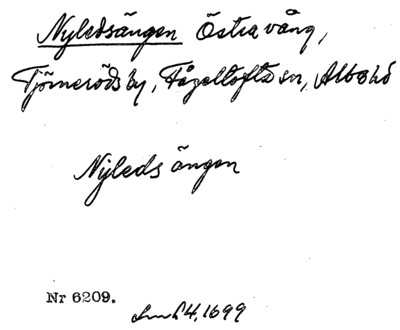 Nyledsängen Östra vång,
Tjörneröds by, Fågeltofta sn, Albo hd
Nyleds ängen
Nr 6209.
1699